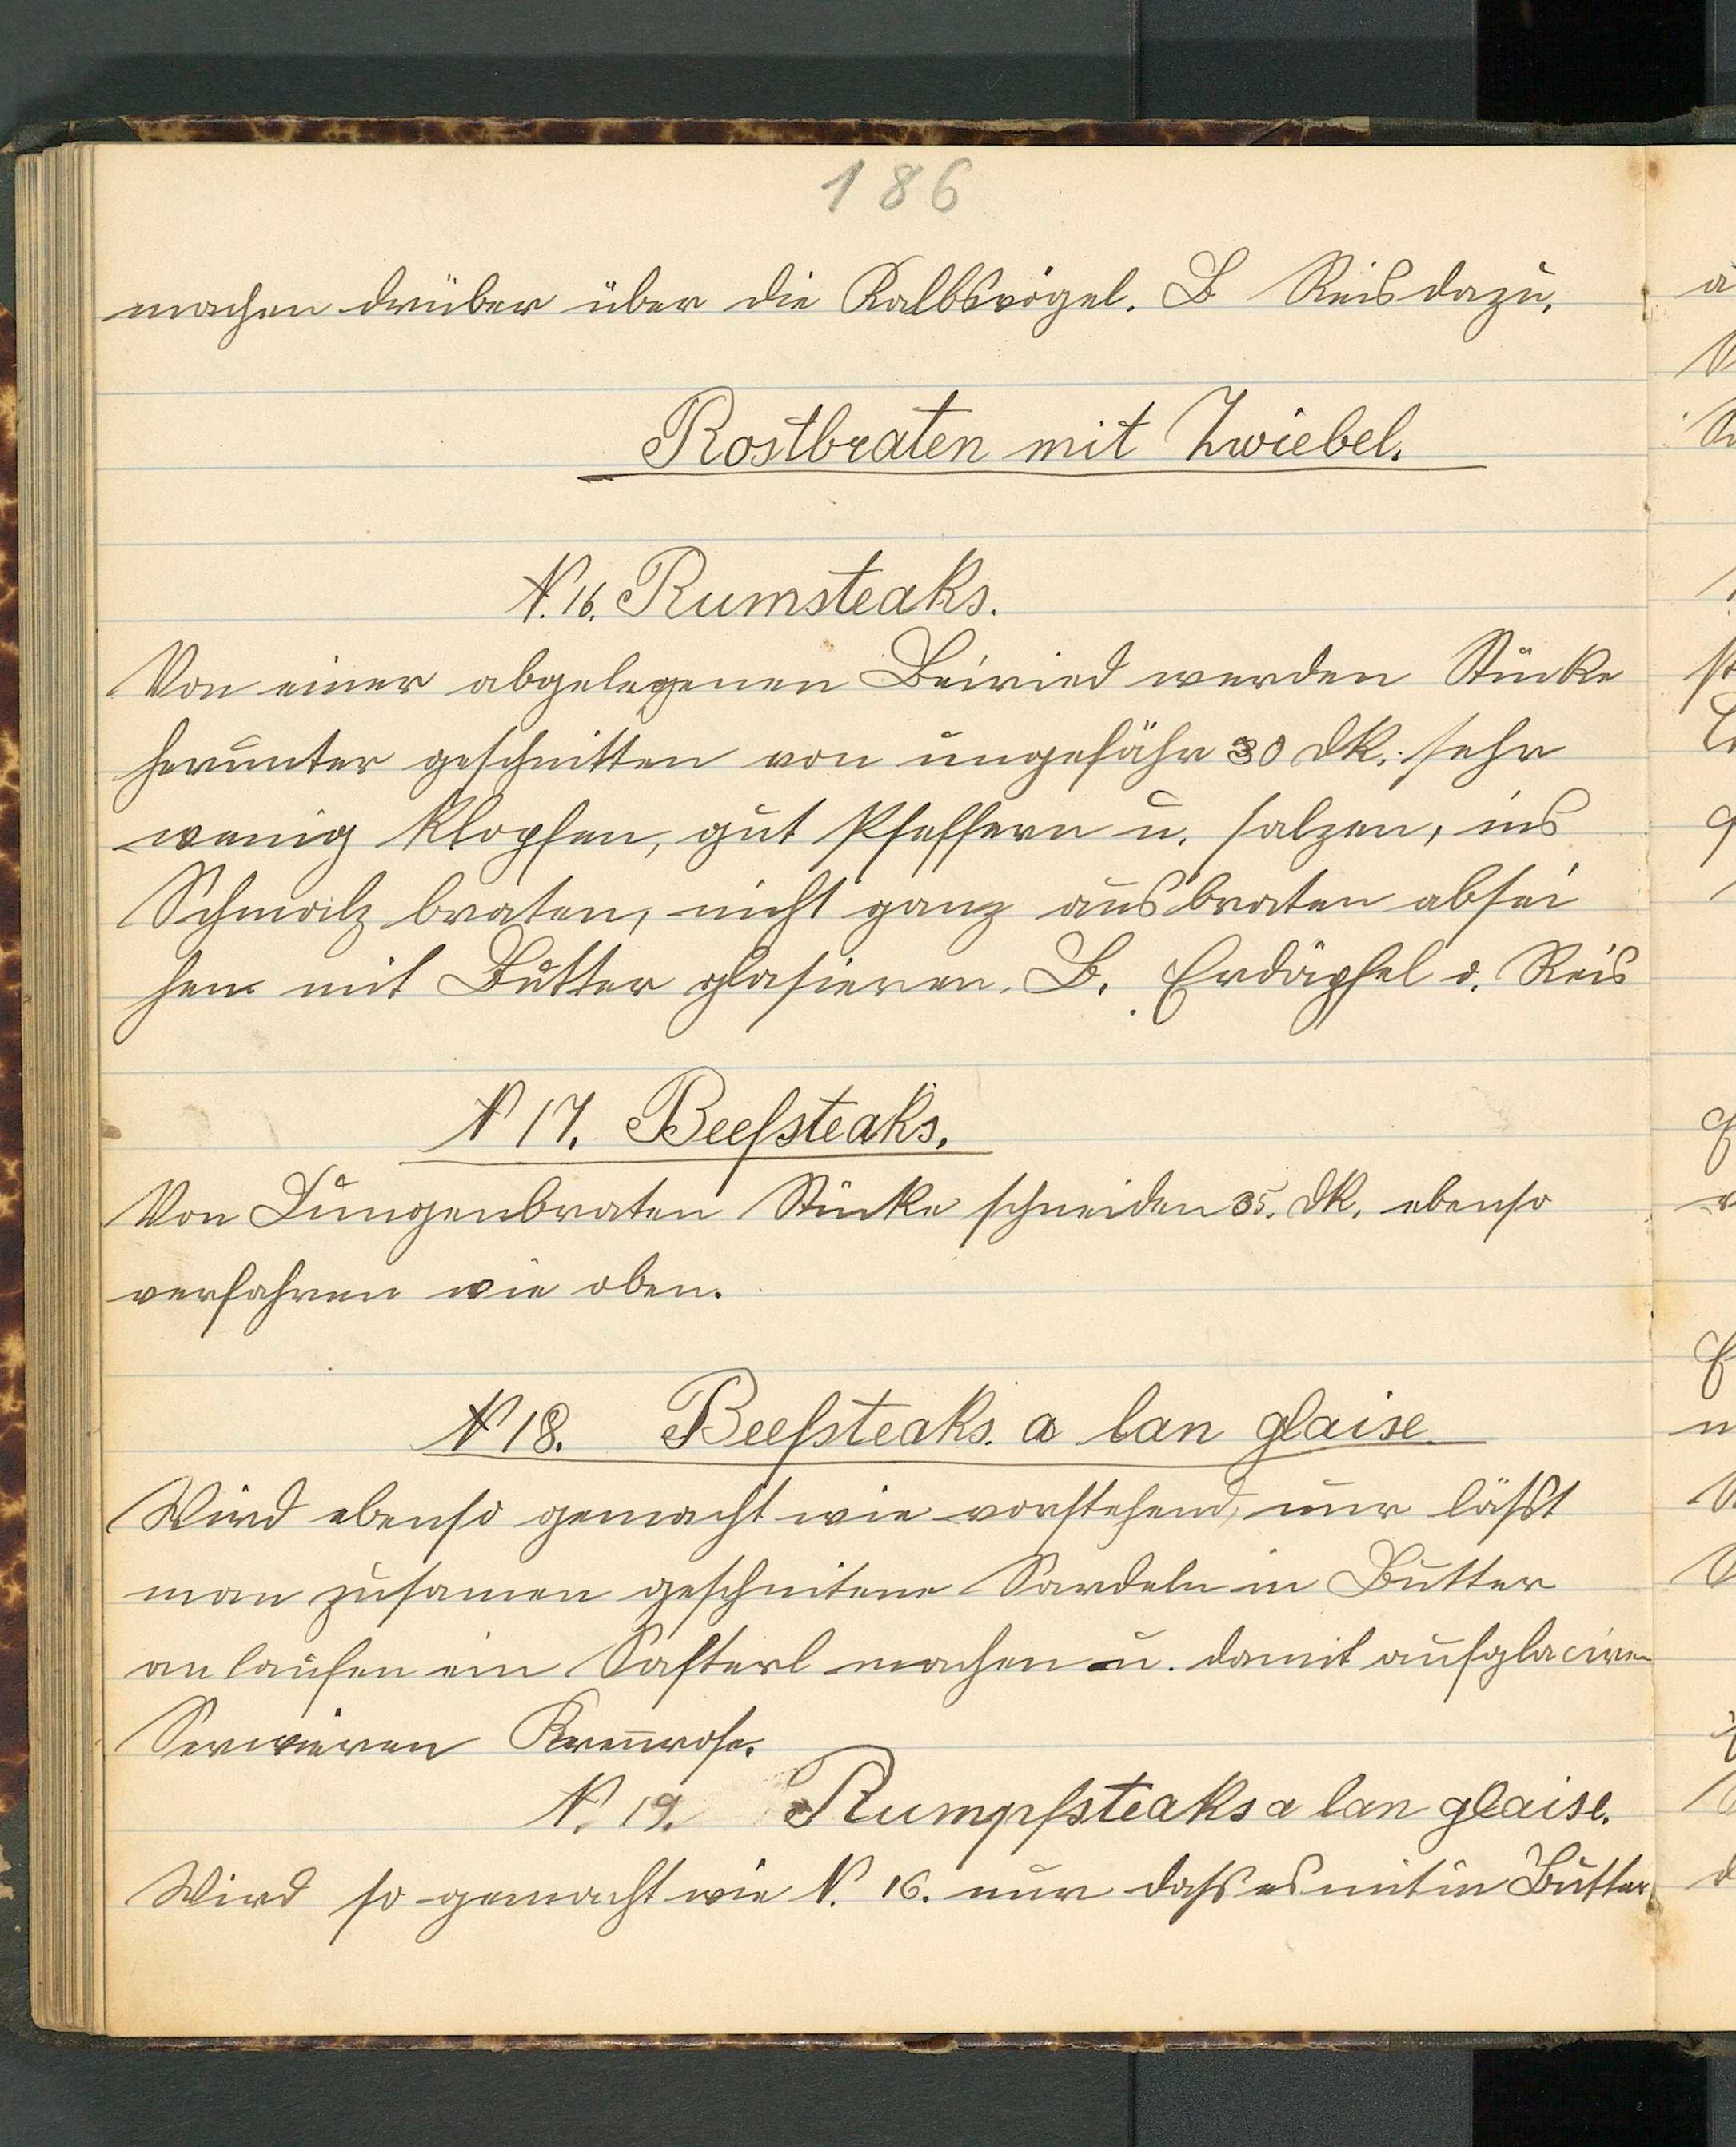 186
machen drüber über die Kalbsvögel. B Reis dazu.
Rostbraten mit Zwiebel.
N. 16. Rumsteaks.
Von einer abgelegenen Beiried werden Stücke
herunter geschnitten von ungefähr 30 dk. sehr
wenig klopfen, gut Pfeffern u. salzen, ins
Schmalz braten, nicht ganz ausbraten absei
hen mit Butter glasieren. B. Erdäpfel o. Reis
N 17. Beefsteaks.
Von Lungenbraten Stücke schneiden 35. dk. ebenso
verfahren wie oben.
N 18. Beefsteaks. a lan glaise
Wird ebenso gemacht wie vorstehend, nur läßt
man zusamen geschnitene Sardeln in Butter
anlaufen ein Safterl machen u. damit aufglaciren
Servieren Krennrose.
N. 19. Rumpfsteaks a lan glaise.
Wird so gemacht wie N. 16. nur daß es mit in Butter